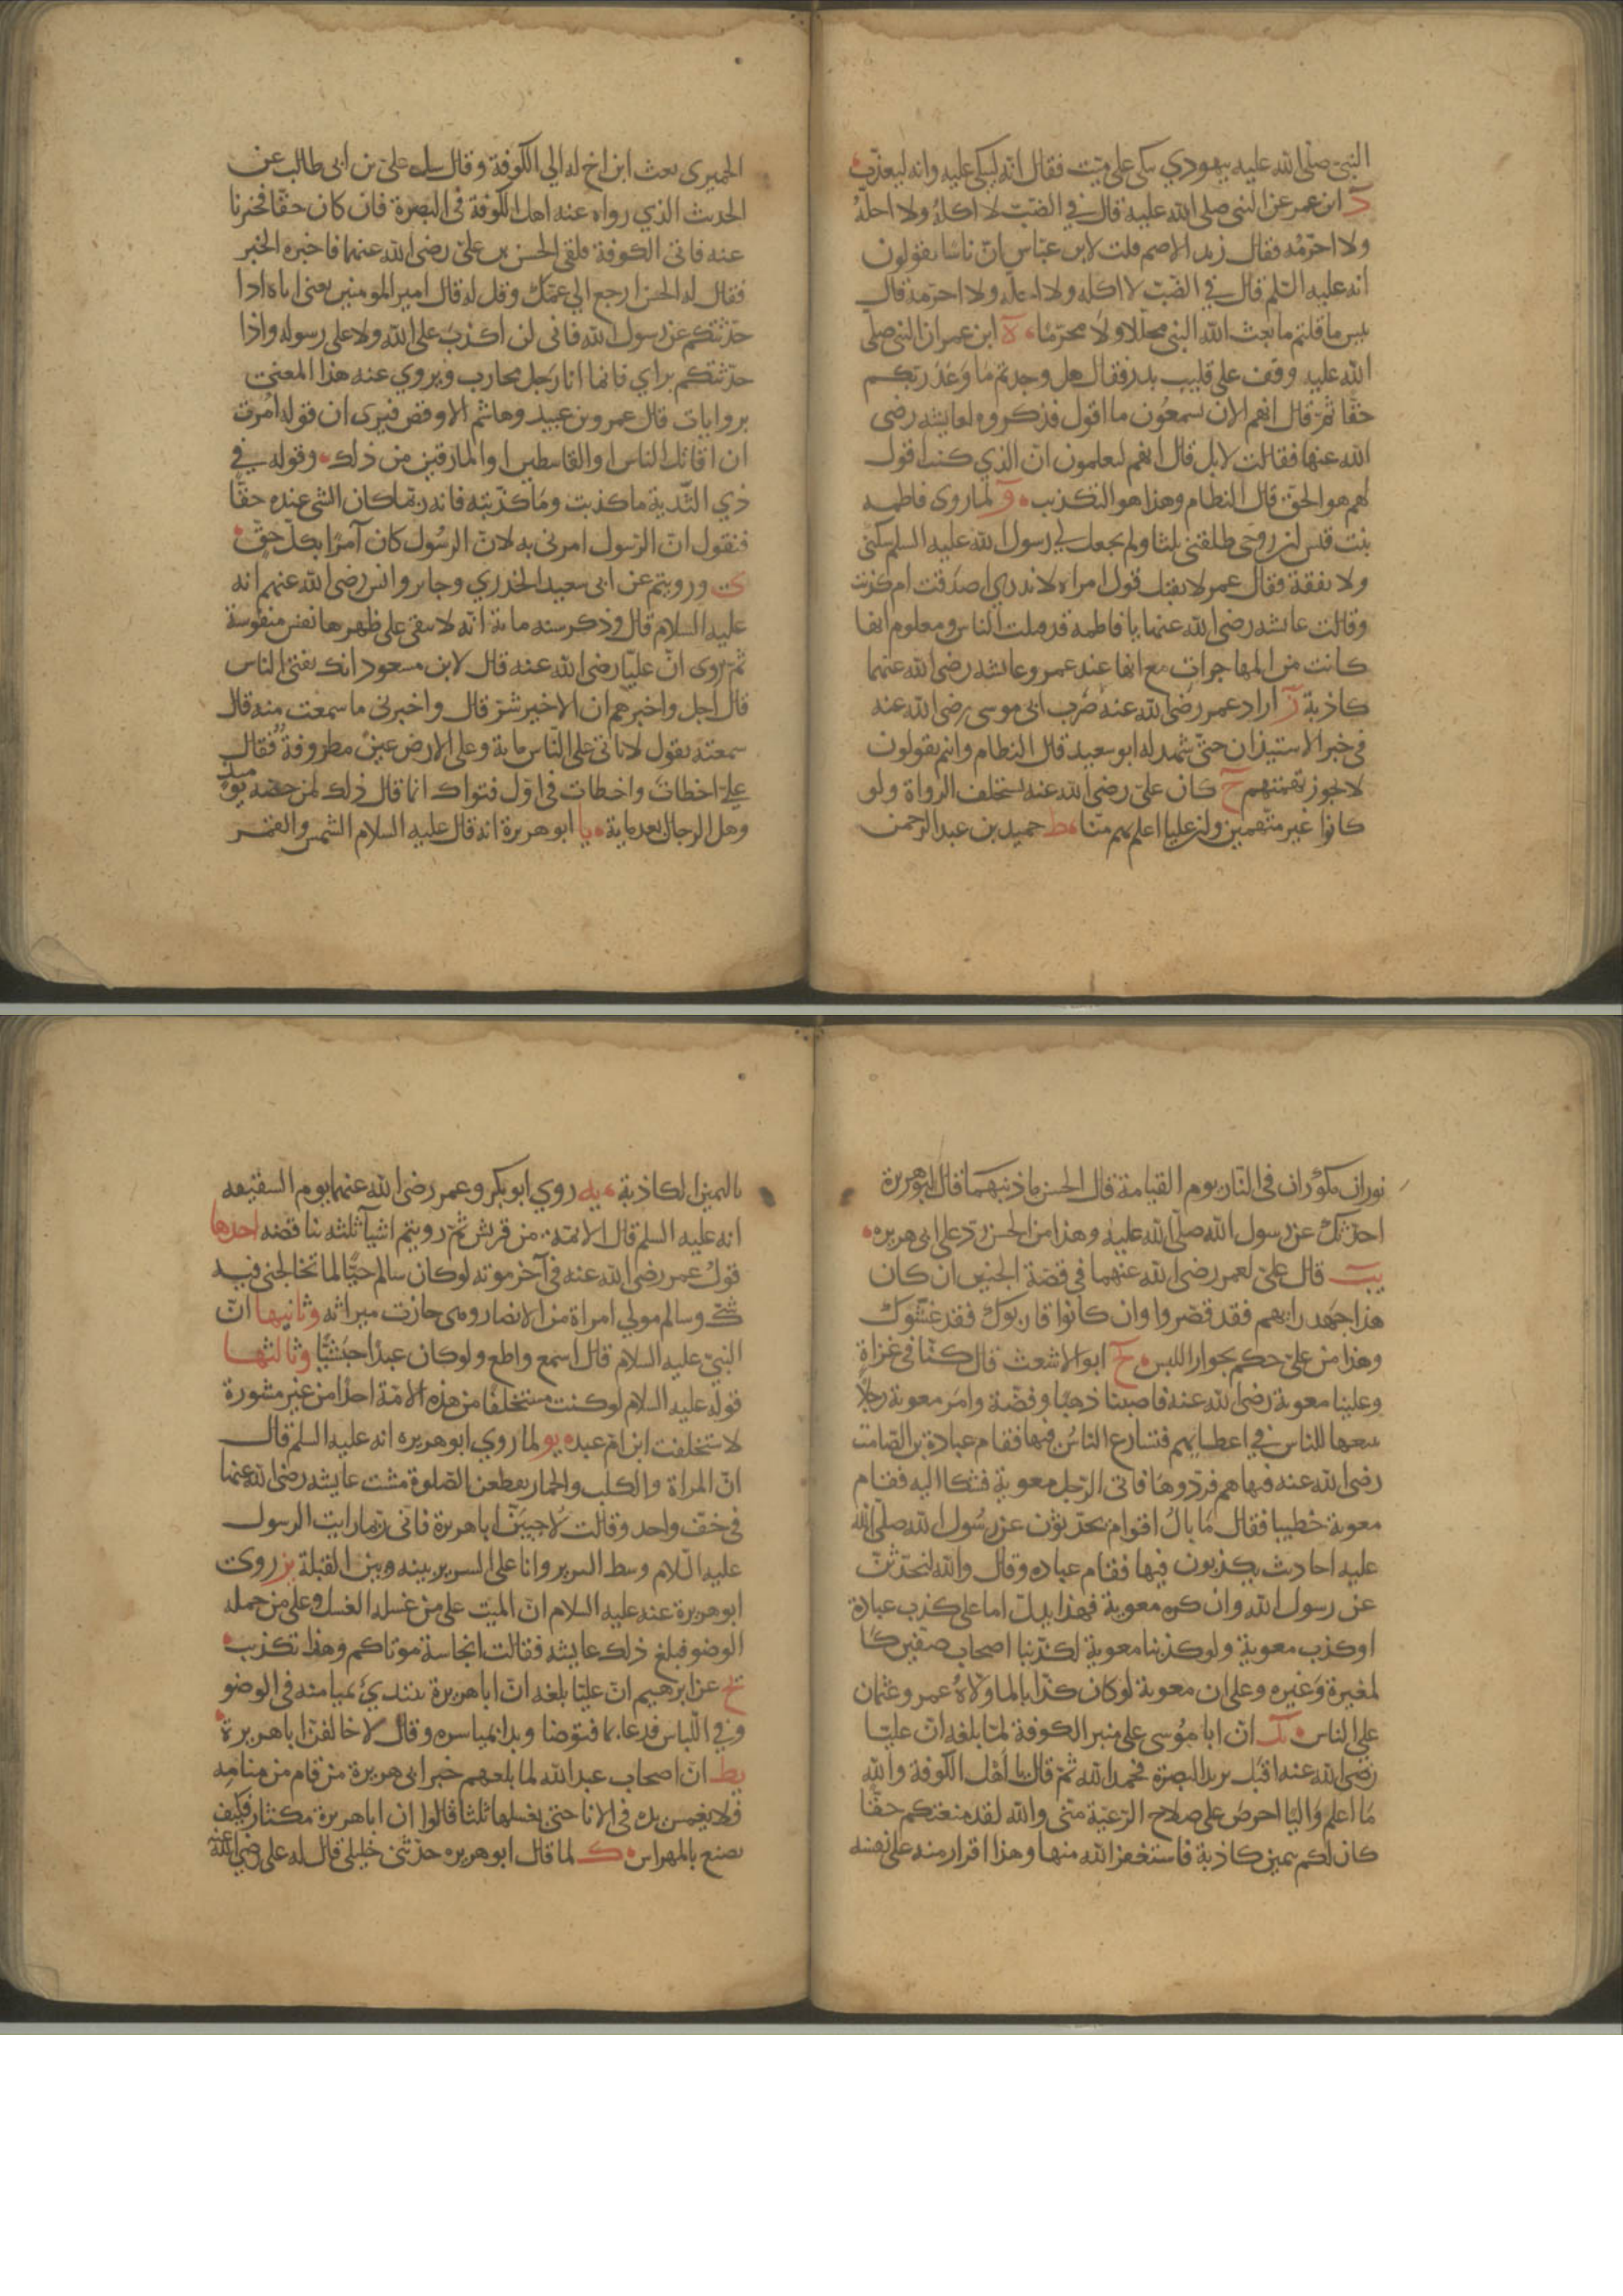 النبي صلى الله عليه بيهودي يبكى على ميت فقال انه ليبكى عليه وانه ليعذب
د ابن عمر عن النبي صلى الله عليه قال في الضب لا اكله ولا احله
ولا احرمه فقال زيد الاصم قلت لابن عباس ان ناسا يقولون
انه عليه السلم قال في الضب لا اكله ولا احله ولا احرمه قال
بيس ما قلتم ما بعث الله النبي محللا ولا محرما ه ابن عمر ان النبي صلى
الله عليه وقف على قليب بدر فقال هل وجدتم ما وعد ربكم
حقا ثم قال انهم الان يسمعون ما اقول فذكروه لعايشه رضى
الله عنها فقالت لا بل قال انهم ليعلمون ان الذي كنت اقول
لهم هو الحق قال النظام وهذا هو التكذيب و لما روى فاطمه
بنت قيس ان زوجى طلقنى ثلثا ولم يجعل لي رسول الله عليه السلم سكنى
ولا نفقة فقال عمر لا يقبل قول امراة لا ندري اصدقت ام كذبت
وقالت عايشه رضى الله عنهما يا فاطمه قد فتنت الناس ومعلوم انها
كانت من المهاجرات مع انها عند عمر وعايشه رضى الله عنهما
كاذبة ز اراد عمر رضى الله عنه ضرب ابى موسى رضى الله عنه
في خبر الاستيذان حتى شهد له ابو سعيد قال النظام وانتم تقولون
لا يجوز تهمتهم ح كان على رضى الله عنه يستحلف الرواة ولو
كانوا غير متهمين ولن عليا اعلم بهم منا ط حميد بن عبد الرحمن
الحميرى بعث ابن اخ له الي الكوفة وقال سل على بن ابى طالب عن
الحديث الذي رواه عنه اهل الكوفة فى البصرة فان كان حقا فخبرنا
عنه فاتى الكوفة فلقى الحسن بن على رضى الله عنهما فاخبره الخبر
فقال له الحسن ارجع الي عمك وقل له قال امير المومنين يعنى اباه اذا
حدثتكم عن رسول الله فانى لن اكذب على الله ولا على رسوله واذا
حدثتكم براي فانما انا رجل محارب ويروي عنه هذا المعنى
بروايات قال عمرو بن عبيد وهاشم الاوقص فيرى ان قوله امرت
ان اقاتل الناس والقاسطين والمارقين من ذلك وقوله في
ذي الثدية ما كذبت وما كذبته فانه ربما كان الشى عنده حقا
فنقول ان الرسول امرنى به لان الرسول كان آمرا بكل حق
ى ورويتم عن ابى سعيد الخدري وجابر وانس رضى الله عنهم انه
عليه السلام قال وذكر سنه مائة انه لا يبقى على ظهرها نفس منفوسة
ثم روى ان عليا رضى الله عنه قال لابن مسعود انك تفتى الناس
قال اجل واخبرهم ان الاخير شر قال واخبرنى ما سمعت منه قال
سمعته يقول لا ياتى على الناس ماية وعلى الارض عين مطروفة فقال
علي اخطات واخطات فى اول فتواك انما قال ذلك لمن حضره يوميذ
وهل الرجا الا بعد ماية يا ابو هريرة انه قال عليه السلام الشمس والقمر
نوران مكوران فى النار يوم القيامة قال الحسن ما ذنبهما قال ابو هريرة
احدثك عن رسول الله صلى الله عليه وهذا من الحسن رد على ابى هريره
يب قال على لعمر رضى الله عنهما فى قصة الجنين ان كان
هذا جهد رايهم فقد قصروا وان كانوا قاربوك فقد غشوك
وهذا من على حكم بجواز اللبس يج ابو الاشعث قال كنا فى غزاة
وعلينا معوية رضى الله عنه فاصبنا ذهبا وفضة وامر معوية رجلا
ببيعها للناس في اعطياتهم فتسارع الناس فيها فقام عبادة بن الصامت
رضى الله عنه فنهاهم فردوها فاتى الرجل معوية فشكا اليه فقام
معوية خطيبا فقال ما بال اقوام يحدثون عن رسول الله صلى الله
عليه احاديث يكذبون فيها فقام عباده وقال والله لنحدثن
عن رسول الله وان كره معوية فهذا يدل اما على كذب عبادة
او كذب معوية ولو كذبنا معوية لكذبنا اصحاب صفين كا
لمغيرة وغيره وعلى ان معوية لو كان كذابا لما ولاه عمر وعثمان
على الناس يد ان ابا موسى على منبر الكوفة لما بلغه ان عليا
رضى الله عنه اقبل يريد البصرة فحمد الله ثم قال يا اهل الكوفة والله
ما اعلم واليا احرص على صلاح الرعية منى والله لقد منعتكم حقا
كان لكم بيمين كاذبة فاستغفر الله منها وهذا اقرار منه على نفسه
باليمين الكاذبة يه روي ابو بكر وعمر رضى الله عنهما يوم السقيفه
انه عليه السلم قال الائمة من قريش ثم رويتم اشياء ثلثه تناقضه احدها
قول عمر رضى الله عنه فى آخر موته لو كان سالم حيا لما تخالجنى فيه
شك وسالم مولي امراة من الانصار وهى حازت ميراثه وثانيها ان
النبي عليه السلام قال اسمع واطع ولو كان عبدا حبشيا وثالثها
قوله عليه السلام لو كنت مستخلفا من هذه الامة احدا من غير مشورة
لاستخلفت ابن ام عبد يو لما روي ابو هريره انه عليه السلم قال
ان المراة والكلب والحمار يقطعن الصلوة مشت عايشه رضى الله عنها
فى خف واحد وقالت لاخيبن ابا هريرة فانى ربما رايت الرسول
عليه السلام وسط السرير وانا على السرير بينه وبين القبلة يز روى
ابو هريرة عنه عليه السلام ان الميت على من غسله الغسل وعلى من حمله
الوضو فبلغ ذلك عايشه فقالت انجاسة موتاكم وهذا تكذيب
يح عن ابرهيم ان عليا بلغه ان ابا هريرة يبتدئ بميامنه فى الوضو
وفي اللباس فدعا بما فتوضا وبدا بمياسره وقال لاخالفن ابا هريرة
يط ان اصحاب عبد الله لما بلغهم خبر ابى هريرة من قام من منامه
فلا يغمس يده فى الانا حتى يغسلها ثلثا قالوا ان ابا هريرة مكثار فكيف
يصنع بالمهراس ك لما قال ابو هريره حدثنى خليلى قال له على رضي الله عنه